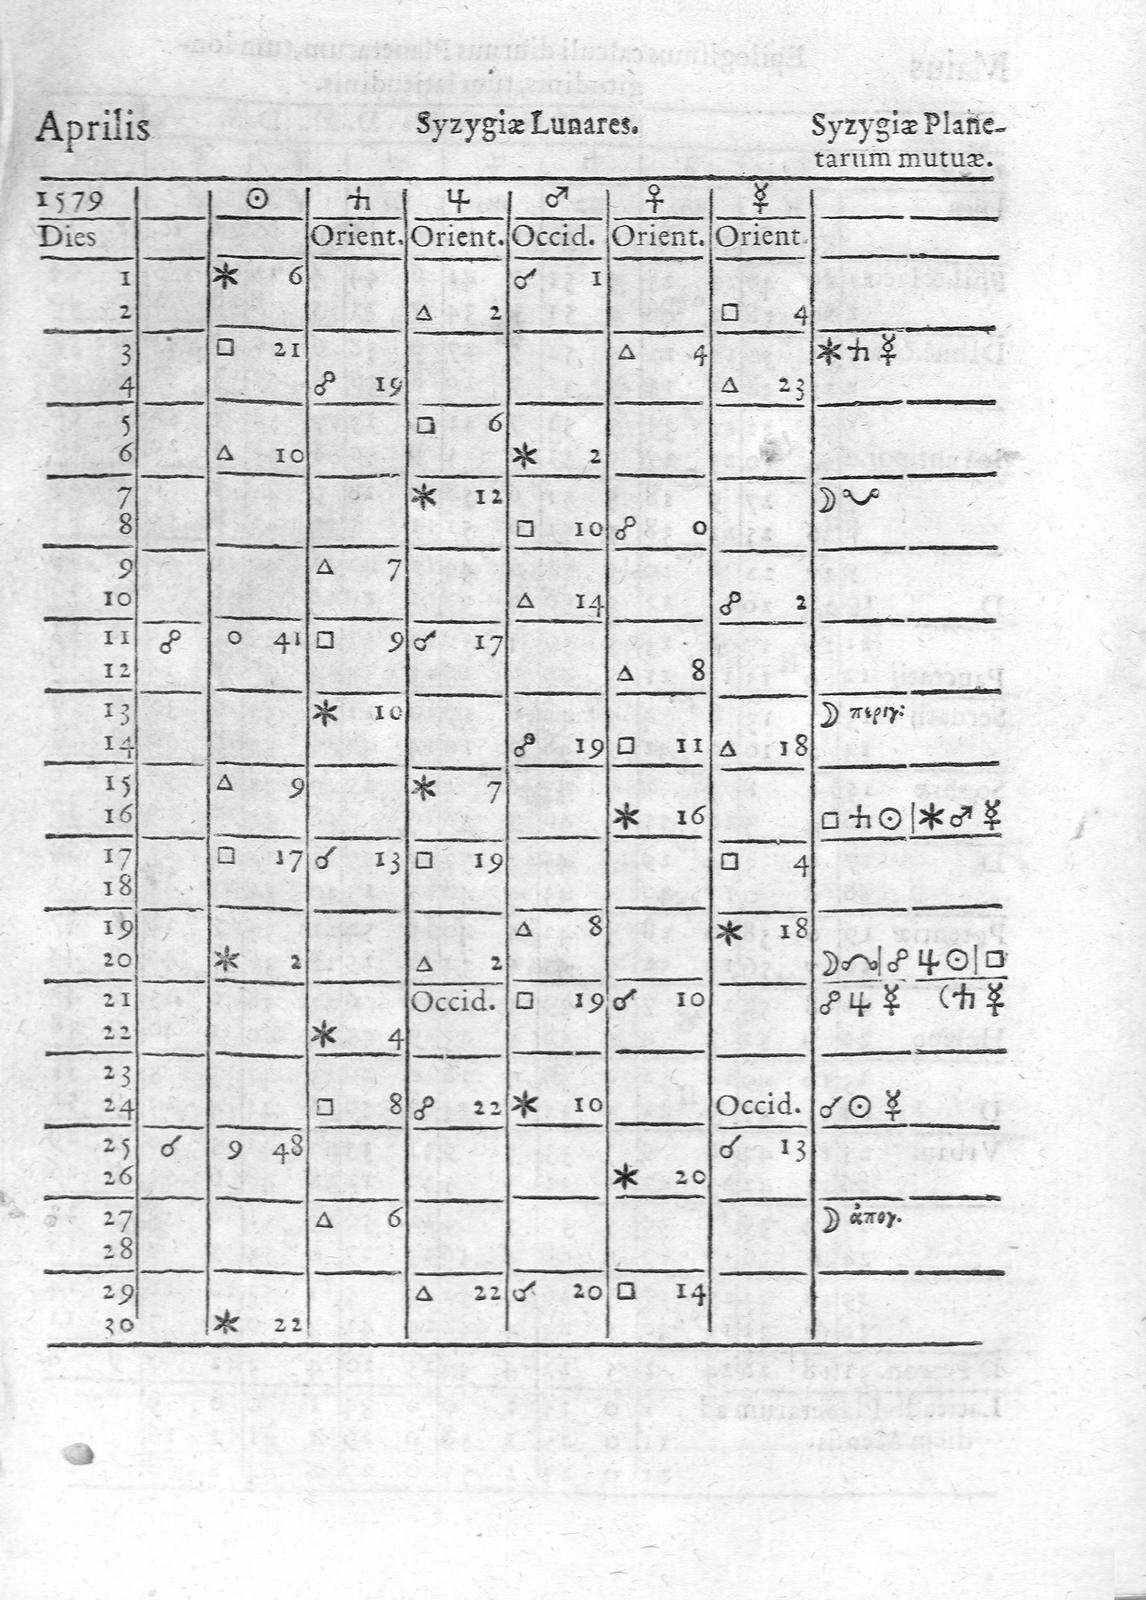 Aprilis Syzygiæ Lunares. Syzygiæ Plane-
tarum mutuæ.
1579 ☉ ♄ ♃ ♂ ♀ ☿
Dies Orient. Orient. Occid. Orient. Orient.
1 ⚹ 6 ☌ 1
2 △ 2 □ 4
3 □ 21 △ 4 ⚹ ♄ ☿
4 ☍ 19 △ 23
5 □ 6
6 △ 10 ⚹ 2
7 ⚹ 12 ☽ ☋
8 □ 10 ☍ 0
9 △ 7
10 △ 14 ☍ 2
11 ☍ 0 41 □ 9 ☌ 17
12 △ 8
13 ⚹ 10 ☽ περιγ:
14 ☍ 19 □ 11 △ 18
15 △ 9 ⚹ 7
16 ⚹ 16 □ ♄ ☉ | ⚹ ♂ ☿
17 □ 17 ☌ 13 □ 19 □ 4
18
19 △ 8 ⚹ 18
20 ⚹ 2 △ 2 ☽ ☊ | ☍ ♃ ☉ | □
21 Occid. □ 19 ☌ 10 ☍ ♃ ☿ (♄ ☿
22 ⚹ 4
23
24 □ 8 ☍ 22 ⚹ 10 Occid. ☌ ☉ ☿
25 ☌ 9 48 ☌ 13
26 ⚹ 20
27 △ 6 ☽ ἀπογ.
28
29 △ 22 ☌ 20 □ 14
30 ⚹ 22